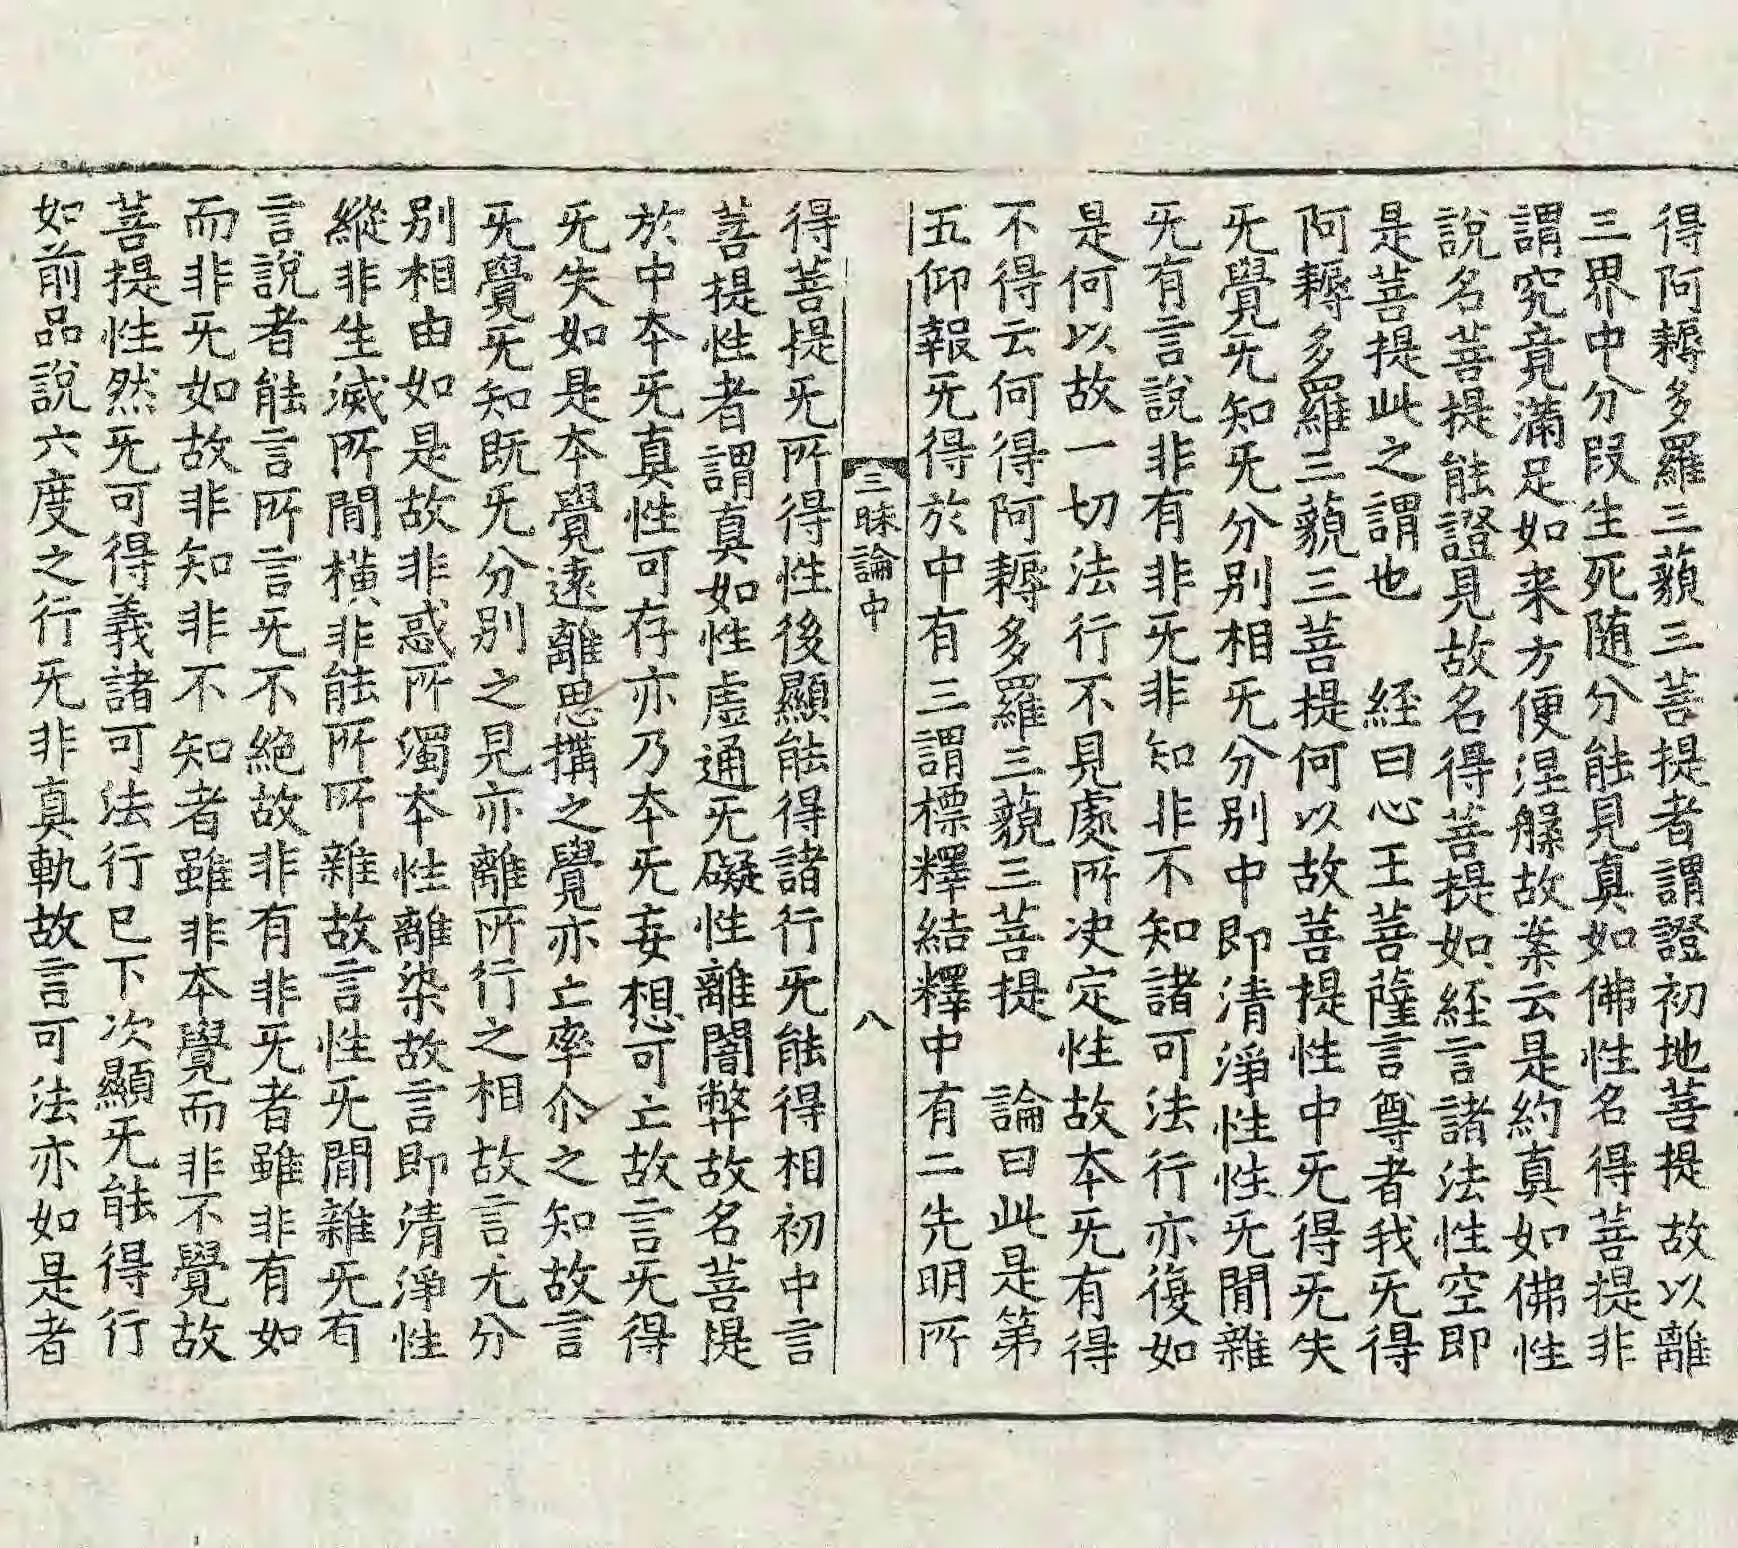 得阿耨多羅三藐三菩提者謂證初地菩提故以離
三界中分段生死随分能見真如佛性名得菩提非
謂究竟滿足如来方便涅槃故業云是約真如佛性
說名菩提能證見故名得菩提如經言諸法性空即
是菩提此之謂也　經曰心王菩薩言尊者我旡得
阿耨多羅三藐三菩提何以故菩提性中旡得旡失
旡覺旡知旡分别相旡分别中即清淨性性旡間雜
旡有言說非有非旡非知非不知諸可法行亦復如
是何以故一切法行不見處所决定性故本旡有得
不得云何得阿耨多羅三藐三菩提　論曰此是第
五仰報旡得於中有三謂標釋結釋中有二先明所
三昧論中　八
得菩提旡所得性後顯能得諸行旡能得相初中言
菩提性者謂真如性虛通旡礙性離闇弊故名菩提
於中本旡真性可存亦乃本旡妄想可亡故言旡得
旡失如是本覺遠離思搆之覺亦亡率尒之知故言
旡覺旡知既旡分别之見亦離所行之相故言旡分
别相由如是故非惑所濁本性離染故言即清淨性
縱非生滅所間横非能所所雜故言性旡間雜旡有
言說者能言所言旡不絶故非有非旡者雖非有如
而非旡如故非知非不知者雖非本覺而非不覺故
菩提性然旡可得義諸可法行已下次顯旡能得行
如前品說六度之行旡非真軌故言可法亦如是者